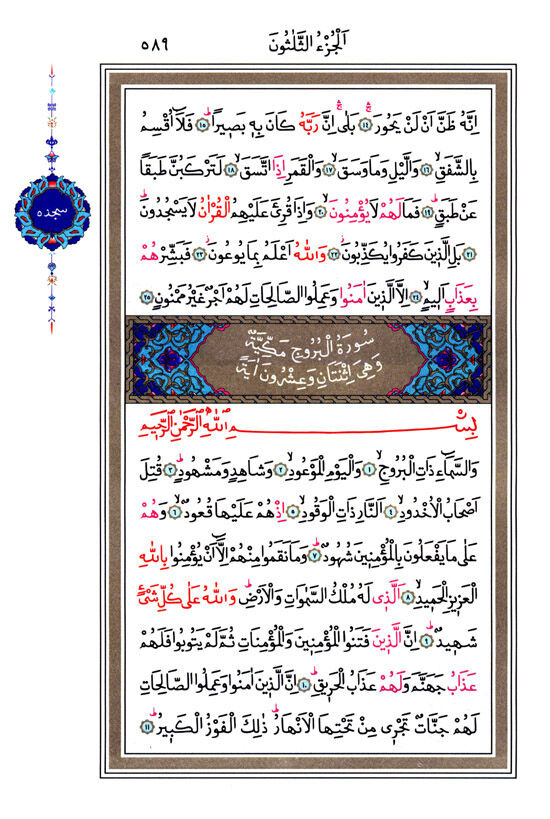 اَلْجُزْءُ الثَّلٰثُونَ
٥٨٩
اِنَّهُ ظَنَّ اَنْ لَنْ يَحُورَۚ ﴿١٤﴾ بَلٰىۚ اِنَّ رَبَّهُ كَانَ بِهٖ بَصٖيراًؕ ﴿١٥﴾ فَلَٓا اُقْسِمُ
بِالشَّفَقِۙ ﴿١٦﴾ وَالَّيْلِ وَمَا وَسَقَۙ ﴿١٧﴾ وَالْقَمَرِ اِذَا اتَّسَقَۙ ﴿١٨﴾ لَتَرْكَبُنَّ طَبَقاً
عَنْ طَبَقٍؕ ﴿١٩﴾ فَمَا لَهُمْ لَا يُؤْمِنُونَۙ ﴿٢٠﴾ وَاِذَا قُرِئَ عَلَيْهِمُ الْقُرْاٰنُ لَا يَسْجُدُونَؕ
سجده
﴿٢١﴾ بَلِ الَّذٖينَ كَفَرُوا يُكَذِّبُونَۘ ﴿٢٢﴾ وَاللّٰهُ اَعْلَمُ بِمَا يُوعُونَۘ ﴿٢٣﴾ فَبَشِّرْهُمْ
بِعَذَابٍ اَلٖيمٍۙ ﴿٢٤﴾ اِلَّا الَّذٖينَ اٰمَنُوا وَعَمِلُوا الصَّالِحَاتِ لَهُمْ اَجْرٌ غَيْرُ مَمْنُونٍ ﴿٢٥﴾
سُورَةُ الْبُرُوجِ مَكِّيَّةٌ
وَهِىَ اِثْنَتَانِ وَعِشْرُونَ اٰيَةً
بِسْمِ اللّٰهِ الرَّحْمٰنِ الرَّحٖيمِ
وَالسَّمَٓاءِ ذَاتِ الْبُرُوجِۙ ﴿١﴾ وَالْيَوْمِ الْمَوْعُودِۙ ﴿٢﴾ وَشَاهِدٍ وَمَشْهُودٍؕ ﴿٣﴾ قُتِلَ
اَصْحَابُ الْاُخْدُودِۙ ﴿٤﴾ اَلنَّارِ ذَاتِ الْوَقُودِۙ ﴿٥﴾ اِذْ هُمْ عَلَيْهَا قُعُودٌۙ ﴿٦﴾ وَهُمْ
عَلٰى مَا يَفْعَلُونَ بِالْمُؤْمِنٖينَ شُهُودٌؕ ﴿٧﴾ وَمَا نَقَمُوا مِنْهُمْ اِلَّٓا اَنْ يُؤْمِنُوا بِاللّٰهِ
الْعَزٖيزِ الْحَمٖيدِۙ ﴿٨﴾ اَلَّذٖى لَهُ مُلْكُ السَّمٰوَاتِ وَالْاَرْضِؕ وَاللّٰهُ عَلٰى كُلِّ شَىْءٍ
شَهٖيدٌؕ ﴿٩﴾ اِنَّ الَّذٖينَ فَتَنُوا الْمُؤْمِنٖينَ وَالْمُؤْمِنَاتِ ثُمَّ لَمْ يَتُوبُوا فَلَهُمْ
عَذَابُ جَهَنَّمَ وَلَهُمْ عَذَابُ الْحَرٖيقِؕ ﴿١٠﴾ اِنَّ الَّذٖينَ اٰمَنُوا وَعَمِلُوا الصَّالِحَاتِ
لَهُمْ جَنَّاتٌ تَجْرٖى مِنْ تَحْتِهَا الْاَنْهَارُؕ ذٰلِكَ الْفَوْزُ الْكَبٖيرُؕ ﴿١١﴾